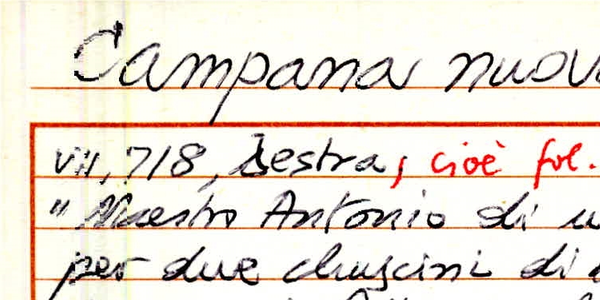 Campana nuova
VII, 7/8, destra, cioè fol.
"Maestro Antonio di
per due chuscini di